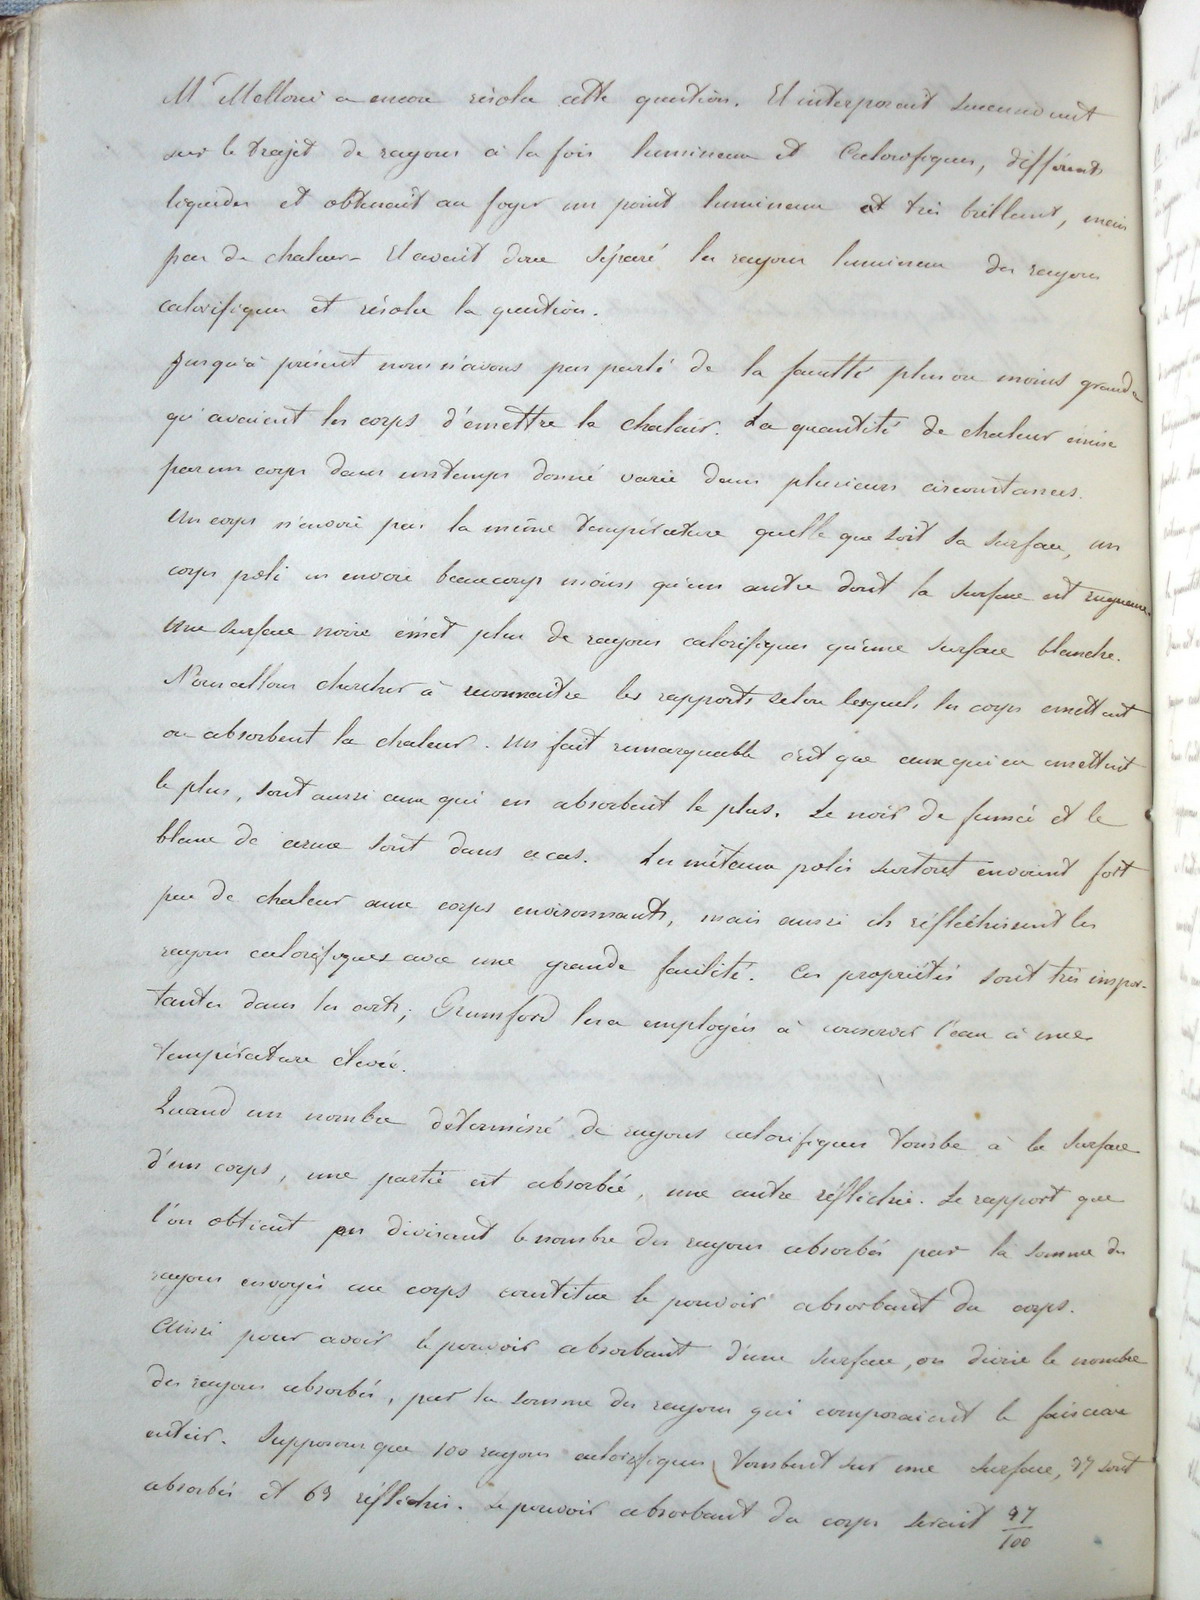 Mr Melloni a encore résolu cette question. Il interposait successivement
sur le trajet de rayons à la fois lumineux et calorifiques, différents
liquides et obtenait au foyer un point lumineux et très brillant, mais
peu de chaleur. Il avait donc séparé les rayons lumineux des rayons
calorifiques et résolu la question.
Jusqu'à présent nous n'avons pas parlé de la faculté plus ou moins grande
qu'avaient les corps d'émettre la chaleur. La quantité de chaleur émise
par un corps dans un temps donné varie dans plusieurs circonstances.
Un corps n'envoie pas la même température quelle que soit sa surface, un
corps poli en envoie beaucoup moins qu'un autre dont la surface est rugueuse.
Une surface noire émet plus de rayons calorifiques qu'une surface blanche.
Nous allons chercher à reconnaître les rapports selon lesquels les corps emettent
ou absorbent la chaleur. Un fait remarquable c'est que ceux qui en emettent
le plus, sont aussi ceux qui en absorbent le plus. Le noir de fumée et le
blanc de ceruse sont dans ce cas. Les métaux polis surtout envoient fort
peu de chaleur aux corps environnants, mais aussi ils réfléchissent les
rayons calorifiques avec une grande facilité. Ces propriétés sont très impor-
tantes dans les arts; Grumford les a employées à conserver l'eau à une
température élevée.
Quand un nombre déterminé de rayons calorifiques tombe à la surface
d'un corps, une partie est absorbée, une autre réfléchie. Le rapport que
l'on obtient en divisant le nombre des rayons absorbés par la somme des
rayons envoyés au corps constitue le pouvoir absorbant du corps.
Ainsi pour avoir le pouvoir absorbant d'une surface, on divise le nombre
des rayons absorbés, par la somme des rayons qui composaient le faisceau
entier. Supposons que 100 rayons calorifiques tombent sur une surface, 37 sont
absorbés et 63 réfléchis. Le pouvoir absorbant du corps serait 37/100